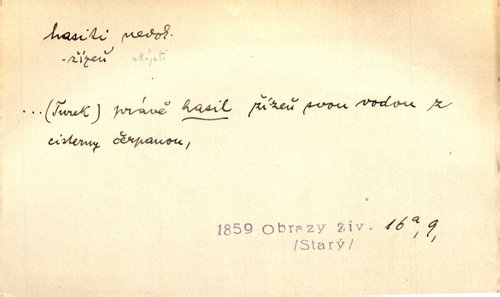 hasiti nedok.
-žízeň
...(Turek) právě hasil žízeň svou vodou z
cisterny čerpanou,
1859 Obrazy živ. 16a, 9,
/Starý/